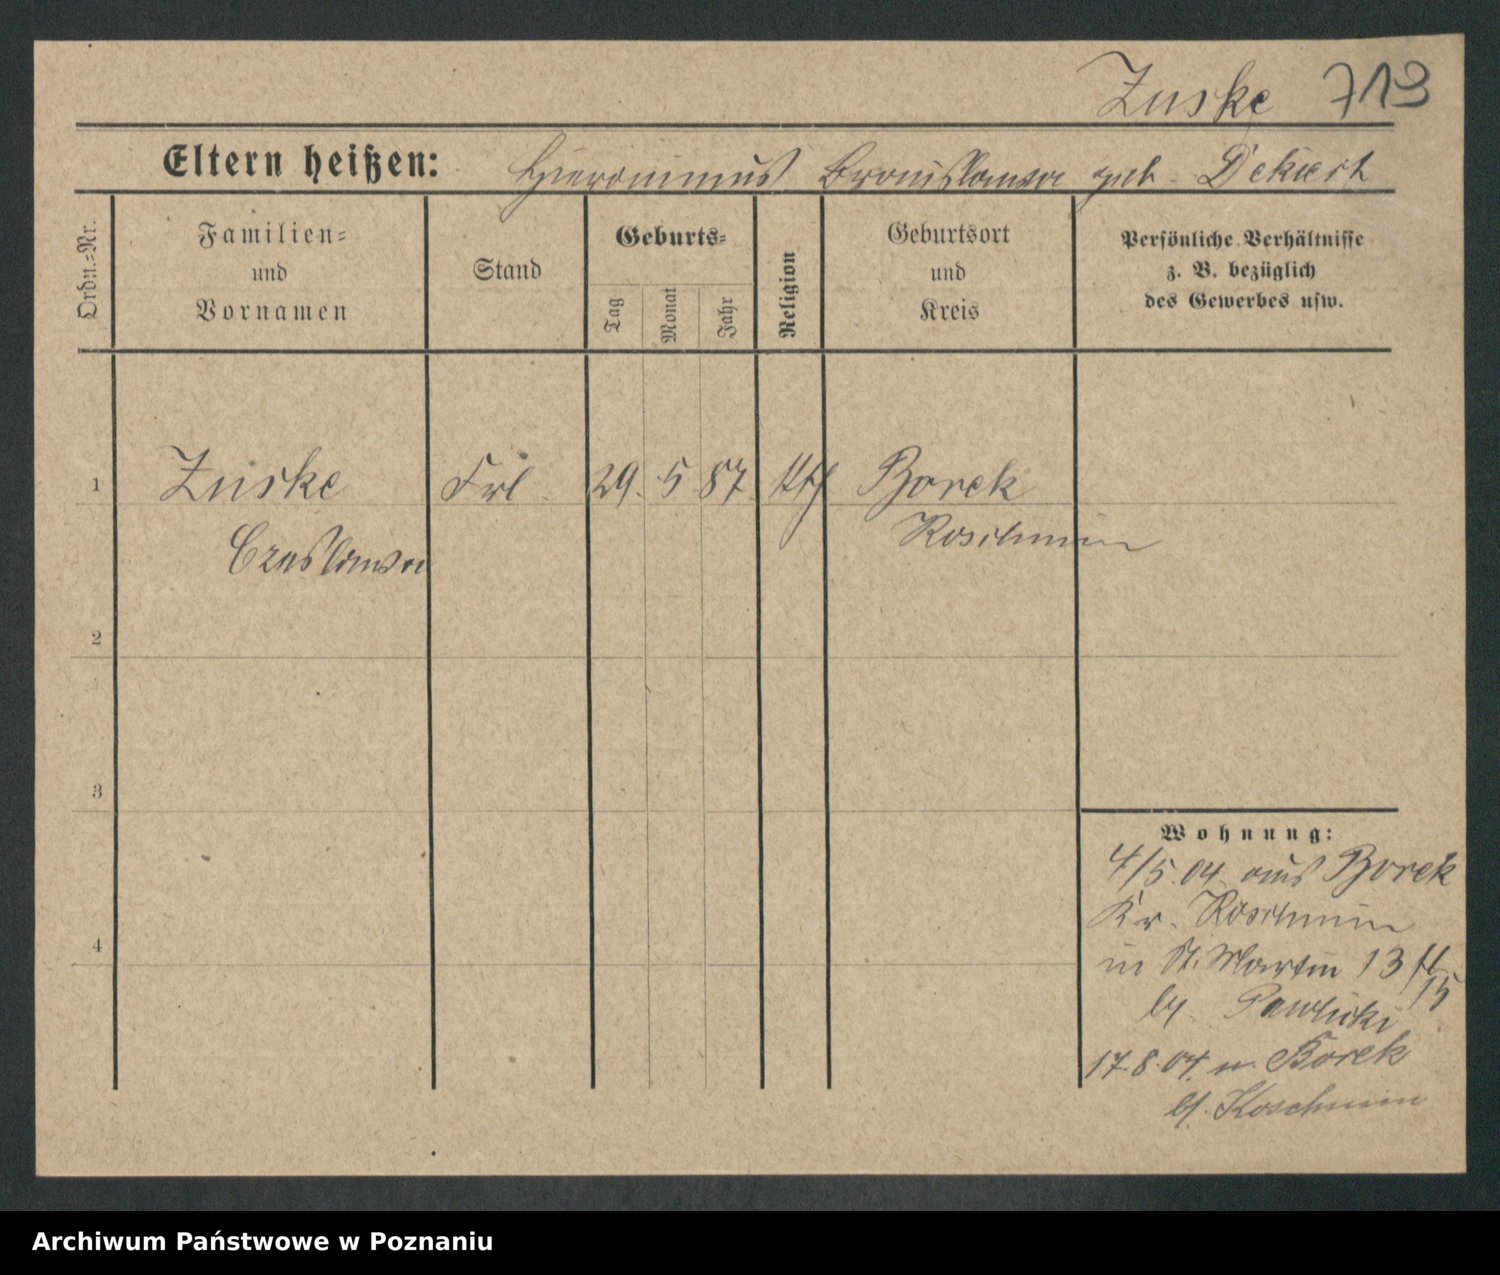 Zuske 713
Eltern heißen: Hieronimus Bronislawa geb. Dekiert
Ordn.-Nr.
Familien-
und
Vornamen
Stand
Geburts-
Tag
Monat
Jahr
Religion
Geburtsort
und
Kreis
Persönliche Verhältnisse
z. B. bezüglich
des Gewerbes usw.
1 Zuske Frl. 29. 5 87. kth Borek
Czeslawa Koschmin
2
3
4
Wohnung:
4/5.04. aus Borek
Kr. Koschmin
in St. Martin 13
15
bei Pawlicki
17.8.04. n. Borek
Koschmin
Archiwum Państwowe w Poznaniu